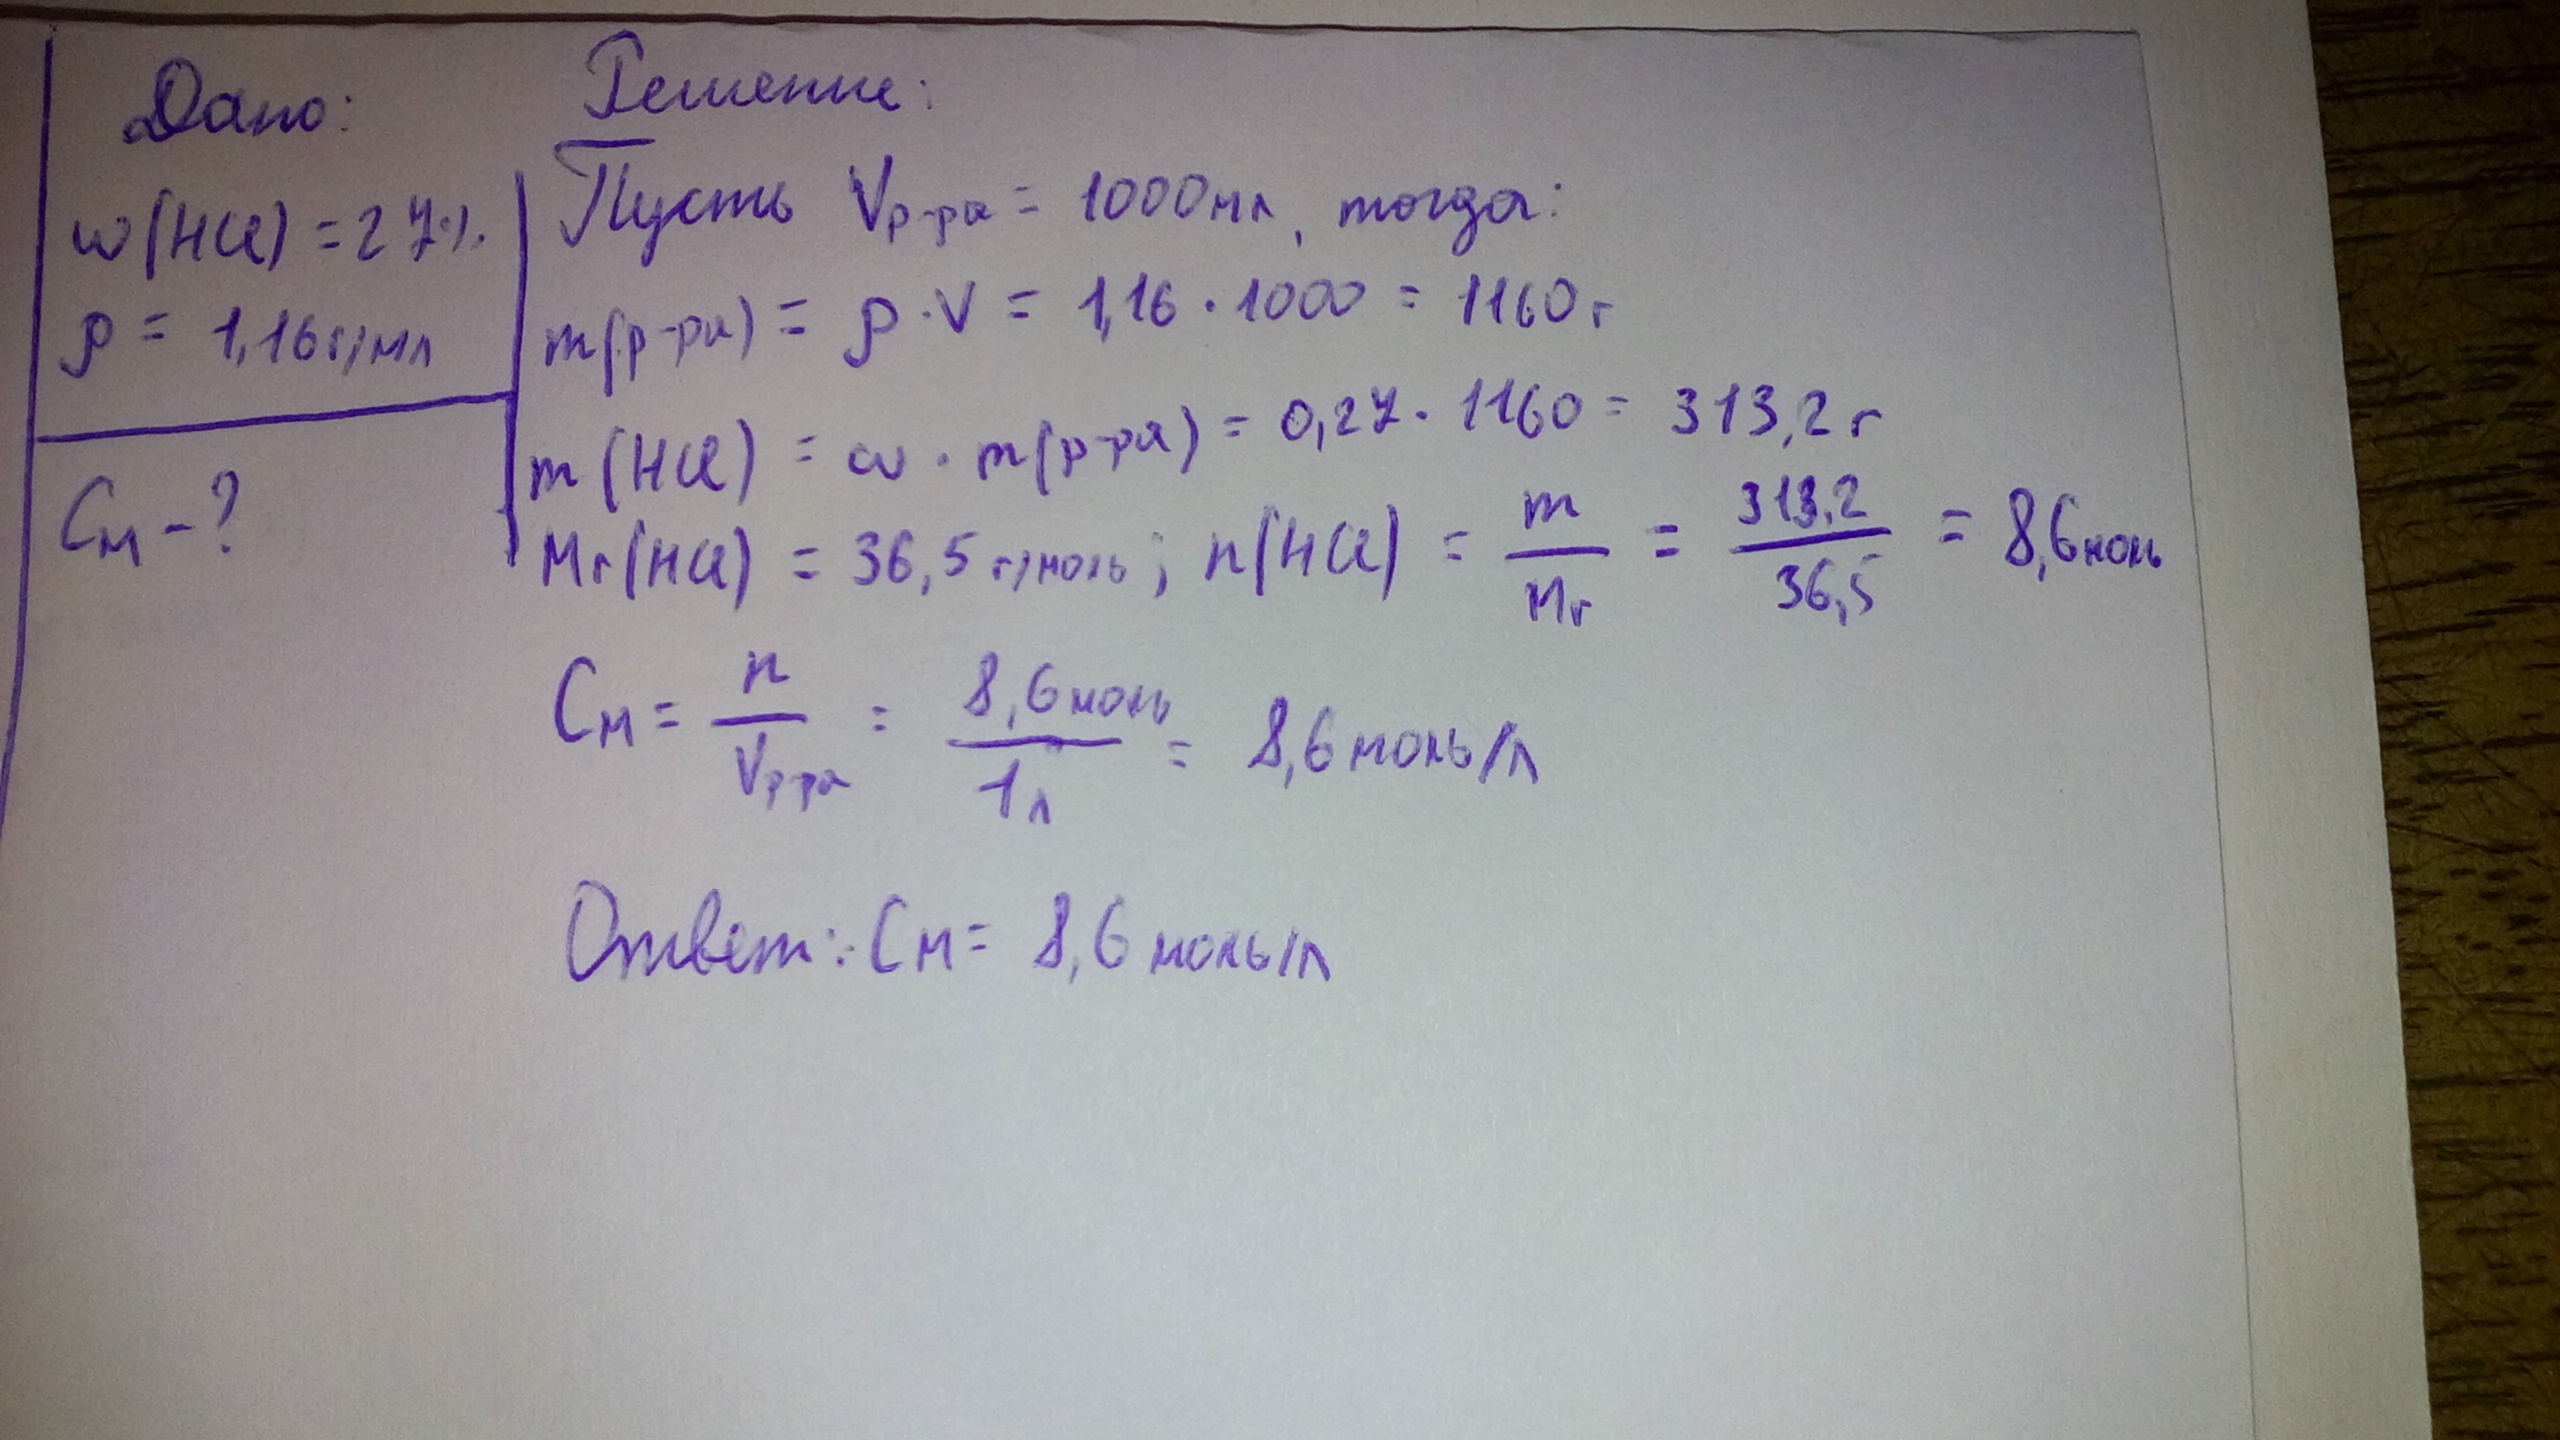 Дано:
w(HCl) = 27%
ρ = 1,16 г/мл
См - ?
Решение:
Пусть Vр-ра = 1000 мл, тогда:
m(р-ра) = ρ · V = 1,16 · 1000 = 1160 г
m(HCl) = w · m(р-ра) = 0,27 · 1160 = 313,2 г
Mr(HCl) = 36,5 г/моль; n(HCl) = m/Mr = 313,2/36,5 = 8,6 моль
См = n/Vр-ра = 8,6 моль/1 л = 8,6 моль/л
Ответ: См = 8,6 моль/л